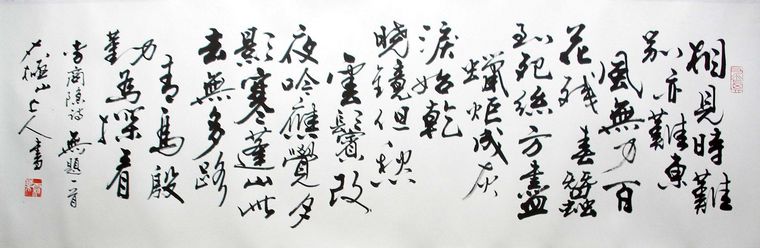 相見時難
別亦難東
風無力百
花殘春蠶
到死絲方盡
蠟炬成灰
淚始乾
曉鏡但愁
雲鬢改
夜吟應覺月
影寒蓬山此
去無多路
青鳥殷
勤為探看
李商隱詩無題一首
極山上人書